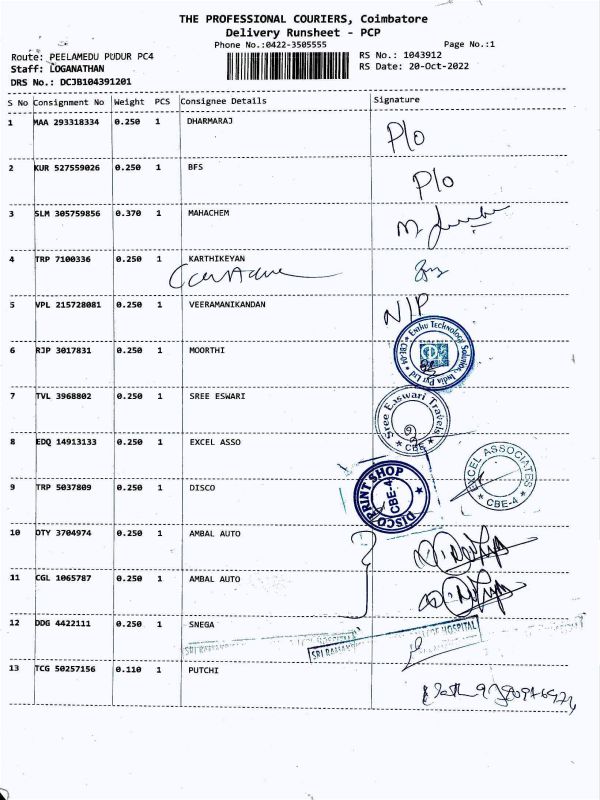 THE PROFESSIONAL COURIERS, Coimbatore
Delivery Runsheet - PCP
Phone No.:0422-3505555 Page No.:1
Route: PEELAMEDU PUDUR PC4 RS No.: 1043912
Staff: LOGANATHAN RS Date: 20-Oct-2022
DRS No.: DCJB104391201
S No Consignment No Weight PCS Consignee Details Signature
1 MAA 293318334 0.250 1 DHARMARAJ P/o
2 KUR 527559026 0.250 1 BFS P/o
3 SLM 305759856 0.370 1 MAHACHEM
4 TRP 7100336 0.250 1 KARTHIKEYAN
5 VPL 215728081 0.250 1 VEERAMANIKANDAN N/P
Enthu Technology Solutions India Pvt Ltd
6 RJP 3017831 0.250 1 MOORTHI
7 TVL 3968802 0.250 1 SREE ESWARI Sree Easwari Travels CBE
8 EDQ 14913133 0.250 1 EXCEL ASSO EXCEL ASSOCIATES CBE-4
9 TRP 5037809 0.250 1 DISCO DISCO PRINT SHOP CBE-4
10 OTY 3704974 0.250 1 AMBAL AUTO
11 CGL 1065787 0.250 1 AMBAL AUTO
12 DDG 4422111 0.250 1 SNEGA
SRI HOSPITAL
13 TCG 50257156 0.110 1 PUTCHI